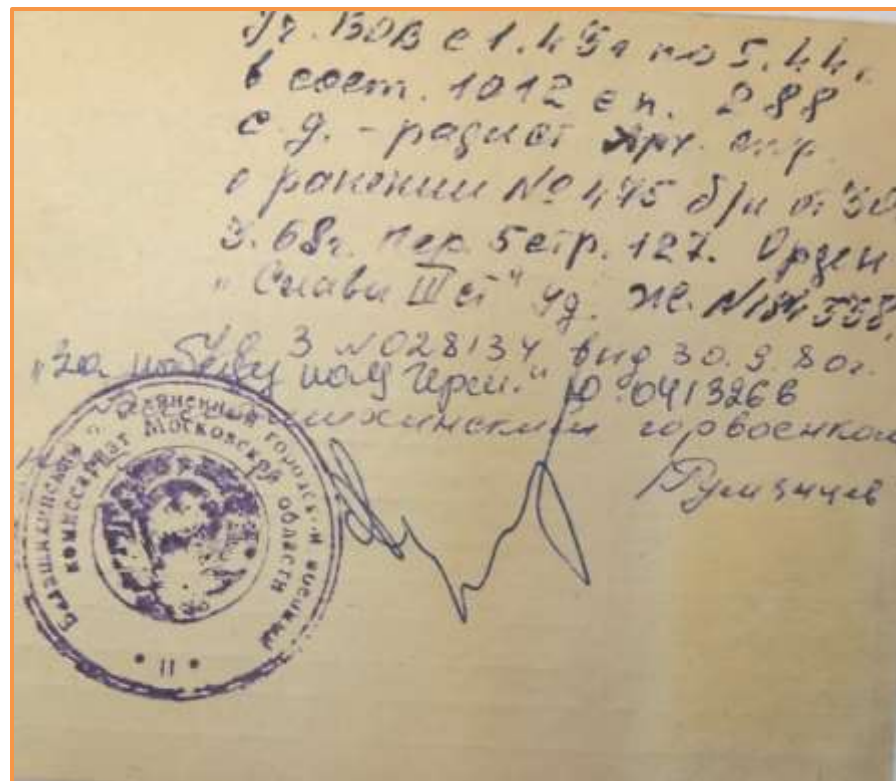 Уч. ВОВ с 1.43г по 5.44г.
в сост. 1012 с.п. 288
с.д. - радист Арх. спр.
о ранении № 475 б/н от 30
3.68г. пер. 5 стр. 127. Орден
"Славы III ст" уд. № 184558,
З № 028134 выд 30.9.80г.
"За победу над Герм." Ю 0413266
горвоенком
Румянцев
Балашихинский объединенный городской военный
комиссариат Московской области
• II •